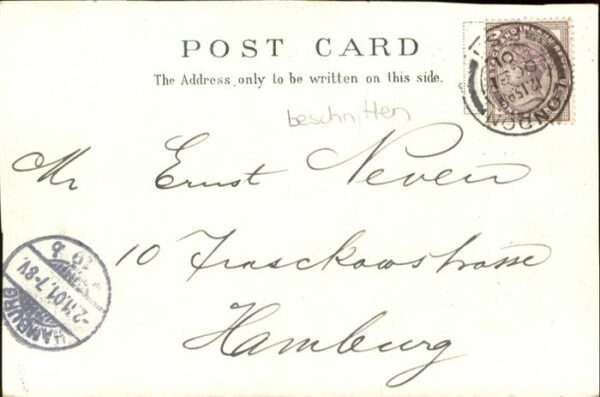 POST CARD
The Address only to be written on this side.
LONDON
beschnitten
Mr Ernst Neven
10 Frasckowstrasse
Hamburg
HAMBURG
-2.11.01.7-8V.